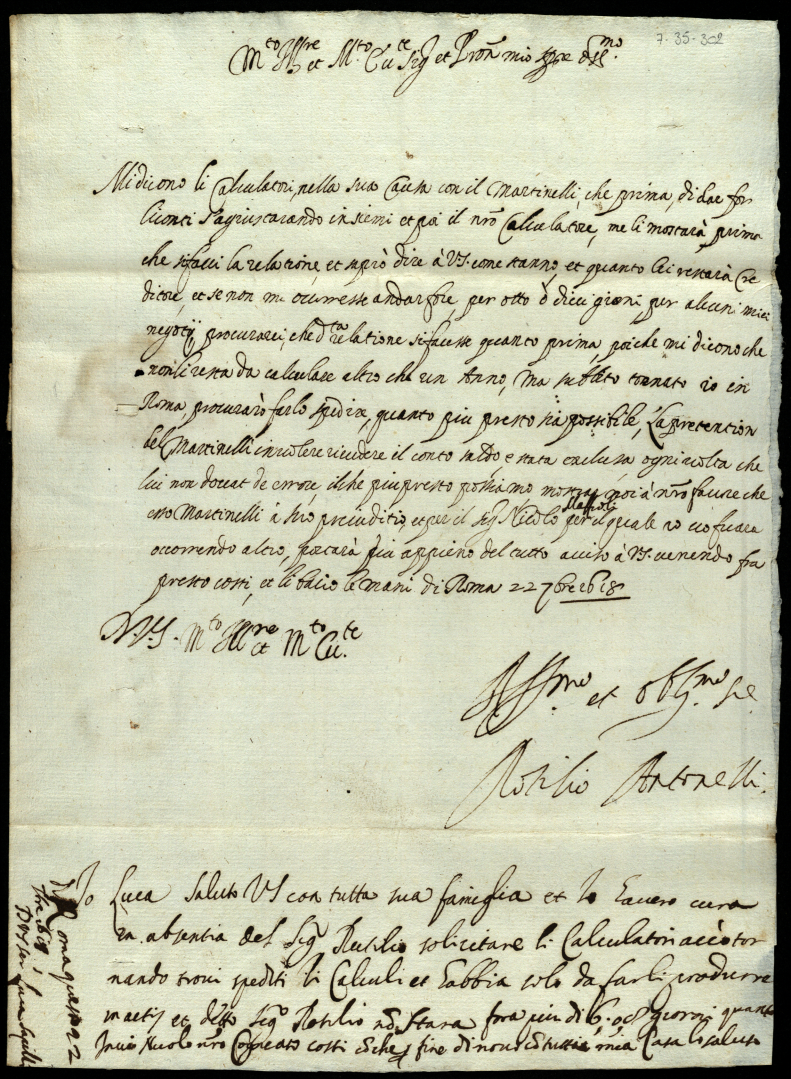 7-35-302
M.to Ill.re et M.to Ecc.te Sig.r et Pron mio sempre oss.mo
Mi dicono li Calculatori, nella sua Causa con il Martinelli, che prima, di dar for
li conti s'agiustarando insiemi et poi il nro Calculatore, me li mostarà prima
che si facci la relatione, et saprò dire à VS. come stanno, et quanto lei restarà Cre
ditore, et se non mi ocurresse andar fore, per otto ò dieci giorni, per alcuni miei
negotij, procurarei, che d.ta relatione si facesse quanto prima, poiche mi dicono che
non li resta da calculare altro che un Anno, ma subbito tornato io in
Roma, procurarò farlo spedire, quanto piu presto sia possibile, La pretention
del Martinelli in volere rivedere il conto saldo, e stata exclusa ogni volta che
lui non doceat de errore, il che piu presto possiamo mostrar noi à nro favore che
esso Martinelli à suo preiuditio, et per il Sig.r Nicolo Maffioli per il quale io
occorrendo altro, portarà piu appieno del tutto aviso à VS. venendo fra
presto costi, et li bacio le mani di Roma 22 7bre 1618
D. VS. M.to Ill.re et M.to Ecc.te
Aff.mo et obl.mo Se.
Rutilio Antonelli.
Io Luca Saluto VS con tutta sua fameglia et Io haverò cura
in absentia del Sig.r Rutilio solicitare li Calculatori acciò tor
nando trovi spediti li Calculi et habbia solo da farli produrre
in actis et detto Sig.r Rutilio nō stara fora piu di 6. o 8 giorni quanto
Nicolo nro Cogniato costi che fine di novo con tutta mia Casa lo saluto
Di Roma questo di 22
7bre 1618
Luca